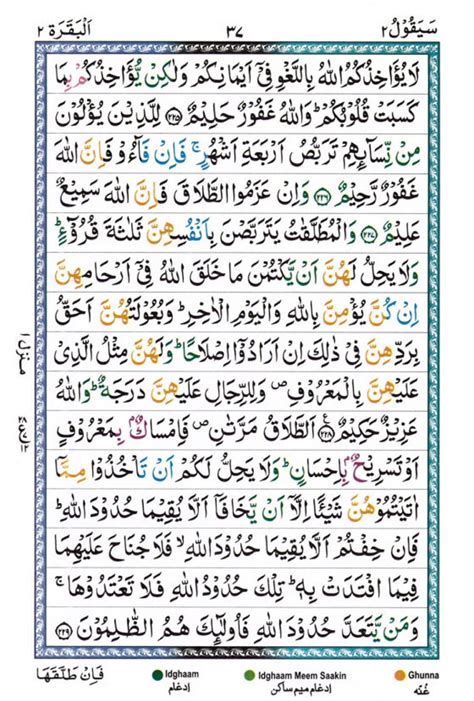 سَيَقُوْلُ ٢ ٣٧ اَلْبَقَرَة ٢
لَا يُؤَاخِذُكُمُ اللّٰهُ بِاللَّغْوِ فِىْٓ اَيْمَانِكُمْ وَلٰكِنْ يُّؤَاخِذُكُمْ بِمَا
كَسَبَتْ قُلُوْبُكُمْ ؕ وَاللّٰهُ غَفُوْرٌ حَلِيْمٌ ۝٢٢٥ لِلَّذِيْنَ يُؤْلُوْنَ
مِنْ نِّسَآئِهِمْ تَرَبُّصُ اَرْبَعَةِ اَشْهُرٍ ۚ فَاِنْ فَآءُوْ فَاِنَّ اللّٰهَ
غَفُوْرٌ رَّحِيْمٌ ۝٢٢٦ وَاِنْ عَزَمُوا الطَّلَاقَ فَاِنَّ اللّٰهَ سَمِيْعٌ
عَلِيْمٌ ۝٢٢٧ وَالْمُطَلَّقٰتُ يَتَرَبَّصْنَ بِاَنْفُسِهِنَّ ثَلٰثَةَ قُرُوْٓءٍ ؕ
وَلَا يَحِلُّ لَهُنَّ اَنْ يَّكْتُمْنَ مَا خَلَقَ اللّٰهُ فِىْٓ اَرْحَامِهِنَّ
اِنْ كُنَّ يُؤْمِنَّ بِاللّٰهِ وَالْيَوْمِ الْاٰخِرِ ؕ وَبُعُوْلَتُهُنَّ اَحَقُّ
بِرَدِّهِنَّ فِىْ ذٰلِكَ اِنْ اَرَادُوْٓا اِصْلَاحًا ؕ وَلَهُنَّ مِثْلُ الَّذِىْ
عَلَيْهِنَّ بِالْمَعْرُوْفِ ۪ وَلِلرِّجَالِ عَلَيْهِنَّ دَرَجَةٌ ؕ وَاللّٰهُ
عَزِيْزٌ حَكِيْمٌ ۝٢٢٨ اَلطَّلَاقُ مَرَّتٰنِ ۪ فَاِمْسَاكٌۢ بِمَعْرُوْفٍ
اَوْ تَسْرِيْحٌۢ بِاِحْسَانٍ ؕ وَلَا يَحِلُّ لَكُمْ اَنْ تَاْخُذُوْا مِمَّآ
اٰتَيْتُمُوْهُنَّ شَيْـًٔا اِلَّآ اَنْ يَّخَافَآ اَلَّا يُقِيْمَا حُدُوْدَ اللّٰهِ ؕ
فَاِنْ خِفْتُمْ اَلَّا يُقِيْمَا حُدُوْدَ اللّٰهِ ۙ فَلَا جُنَاحَ عَلَيْهِمَا
فِيْمَا افْتَدَتْ بِهٖ ؕ تِلْكَ حُدُوْدُ اللّٰهِ فَلَا تَعْتَدُوْهَا ۚ
وَمَنْ يَّتَعَدَّ حُدُوْدَ اللّٰهِ فَاُولٰٓئِكَ هُمُ الظّٰلِمُوْنَ ۝٢٢٩
منزل ١
فَاِنْ طَلَّقَهَا
Idghaam
ادغام
Idghaam Meem Saakin
ادغام میم ساکن
Ghunna
غُنّه